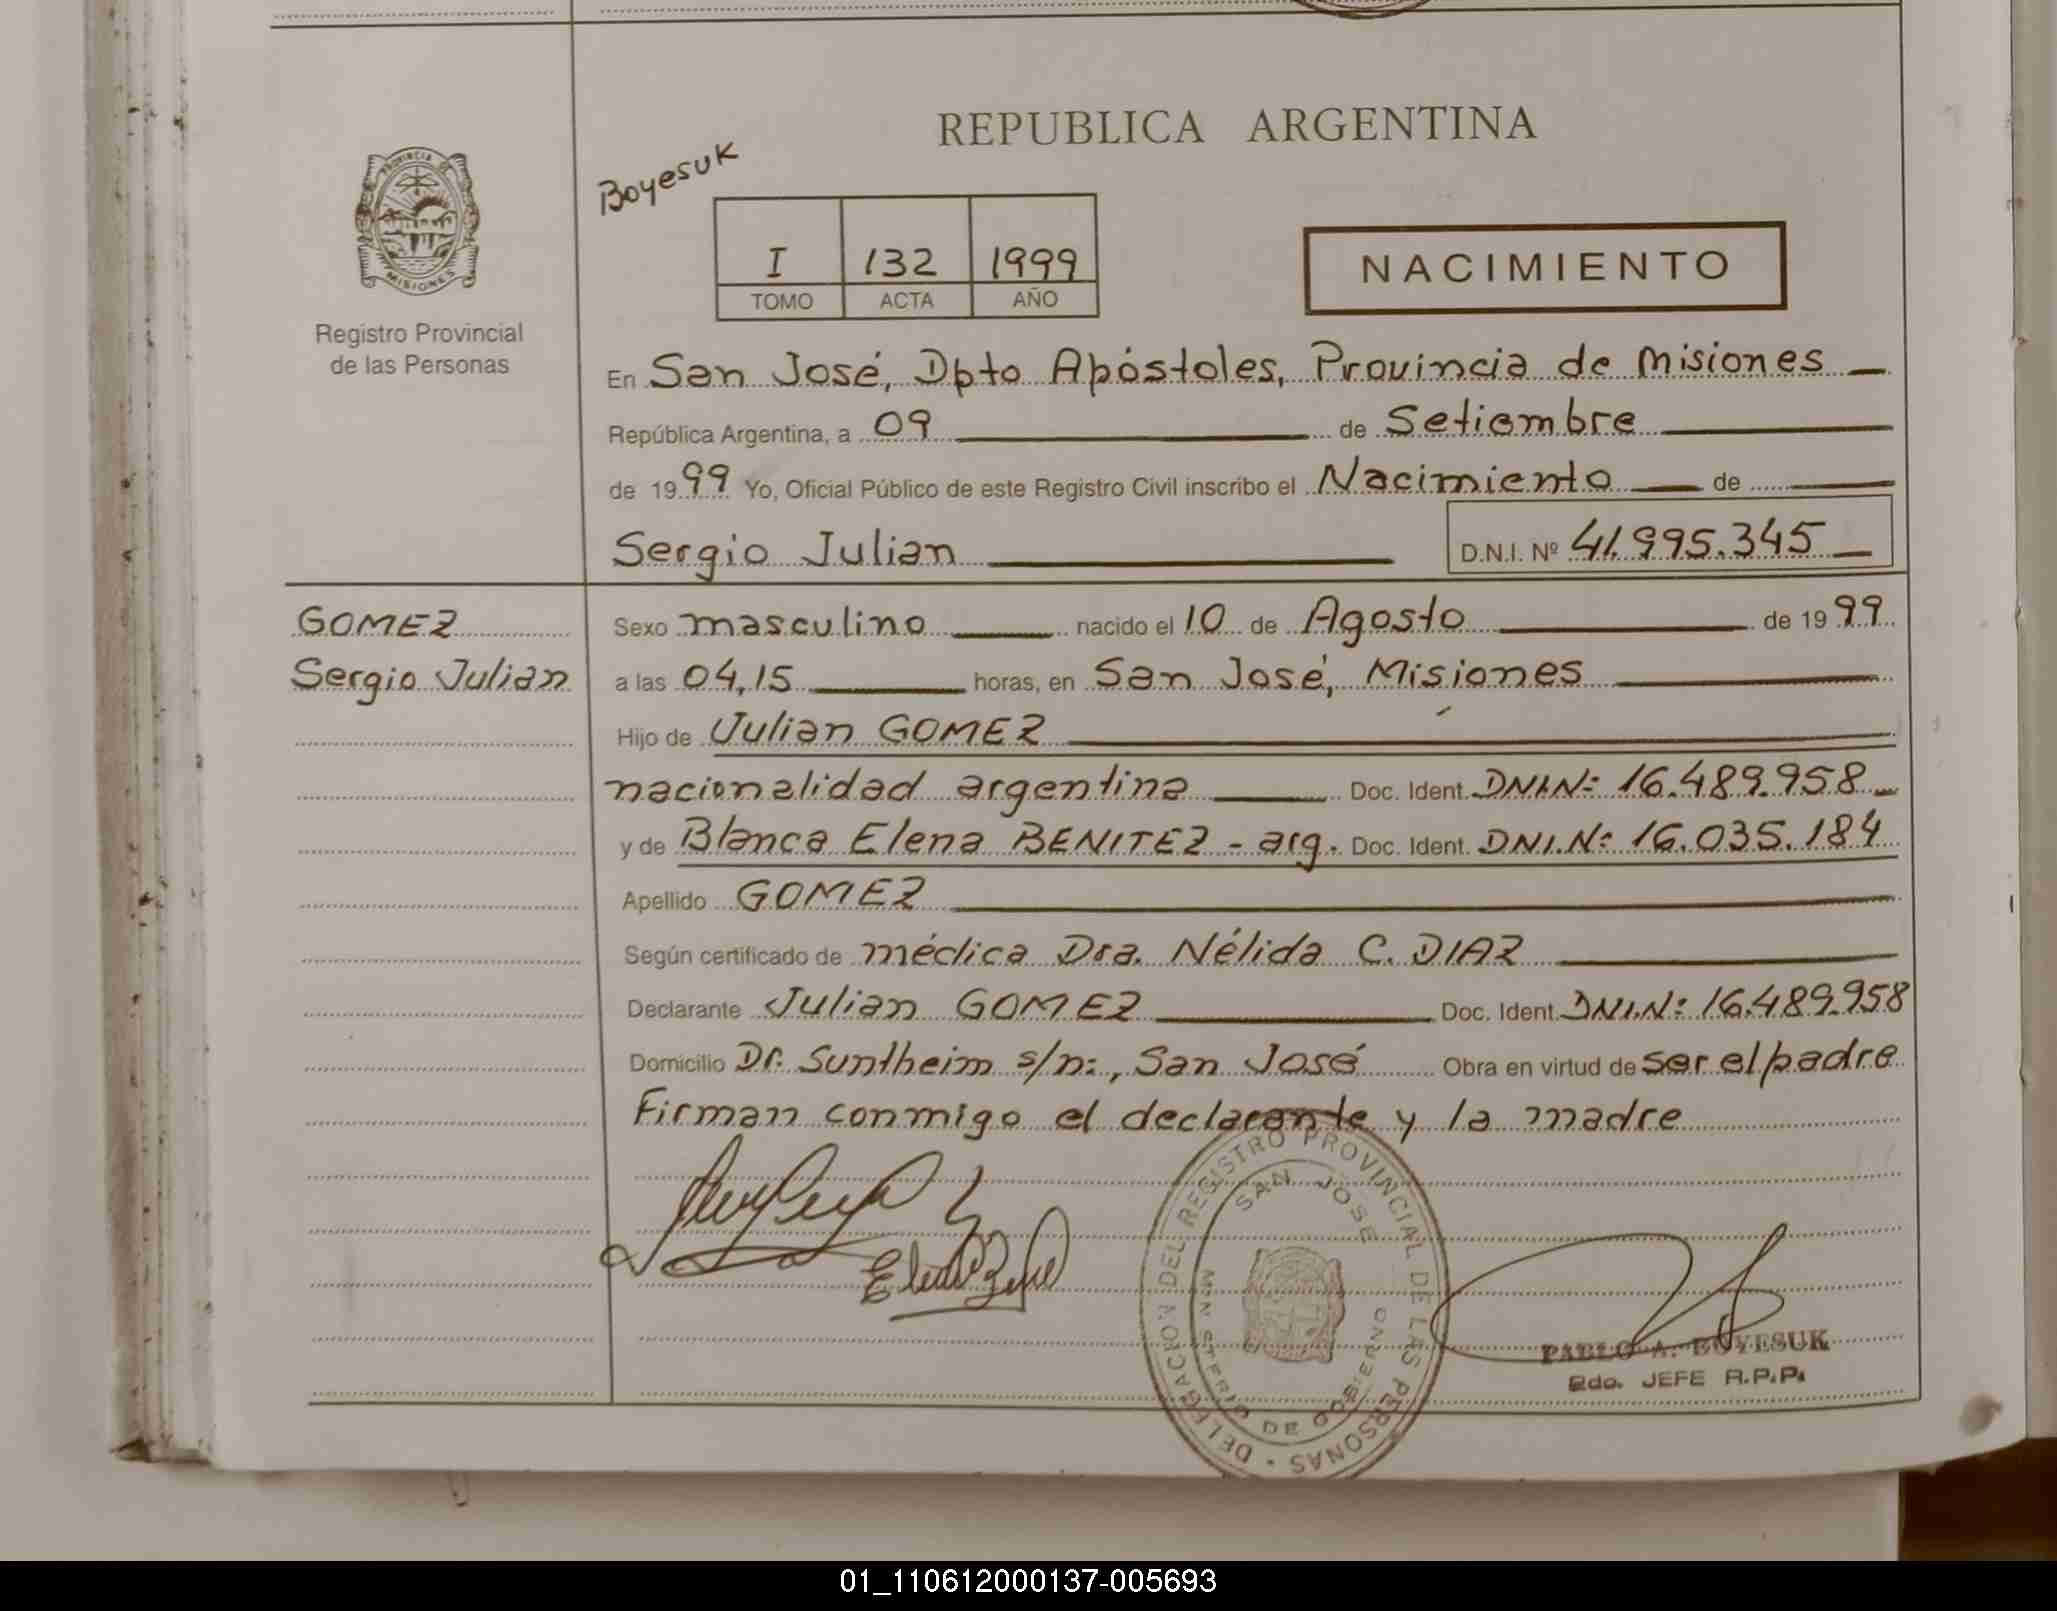 REPUBLICA ARGENTINA
Boyesuk
PROVINCIA DE
MISIONES
Registro Provincial
de las Personas
I 132 1999
TOMO ACTA AÑO
NACIMIENTO
En San José, Dpto Apóstoles, Provincia de Misiones
República Argentina, a 09 de Setiembre
de 1999 Yo, Oficial Público de este Registro Civil inscribo el Nacimiento de
Sergio Julian D.N.I. Nº 41.995.345
GOMEZ
Sergio Julian
Sexo masculino nacido el 10 de Agosto de 1999
a las 04,15 horas, en San José, Misiones
Hijo de Julian GOMEZ
nacionalidad argentina Doc. Ident. DNI.Nº: 16.489.958
y de Blanca Elena BENITEZ - arg. Doc. Ident. DNI.Nº: 16.035.184
Apellido GOMEZ
Según certificado de médica Dra. Nélida C. DIAZ
Declarante Julian GOMEZ Doc. Ident. DNI.Nº: 16.489.958
Domicilio Dr. Suntheim s/nº:, San José Obra en virtud de ser el padre
Firman conmigo el declarante y la madre
DELEGACION DEL REGISTRO PROVINCIAL DE LAS PERSONAS
SAN JOSE
MINISTERIO DE GOBIERNO
PABLO A. BOYESUK
Edo. JEFE R.P.P.
01_110612000137-005693